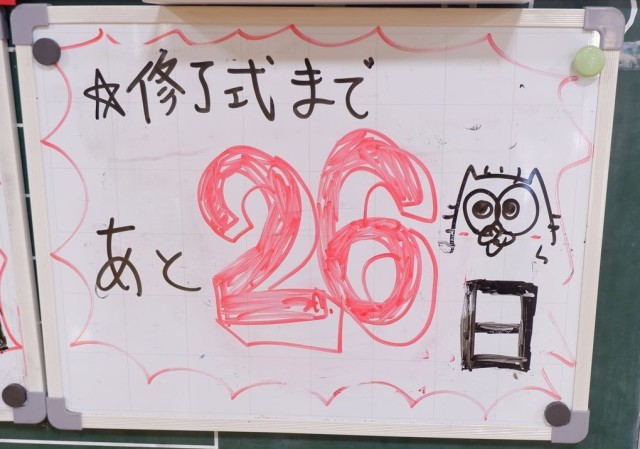 ☆修了式まで
あと26日